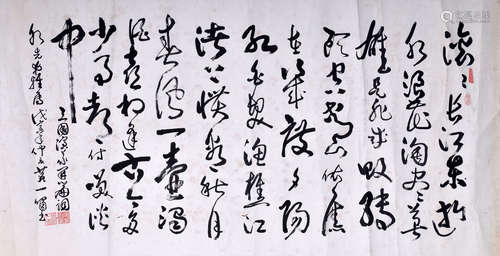 滚滚长江东逝
水浪花淘尽英
雄是非成败转
头空青山依旧
在几度夕阳
红白发渔樵江
渚上惯看秋月
春风一壶浊
酒喜相逢古今多
少事都付笑谈
中
三国演义开篇词